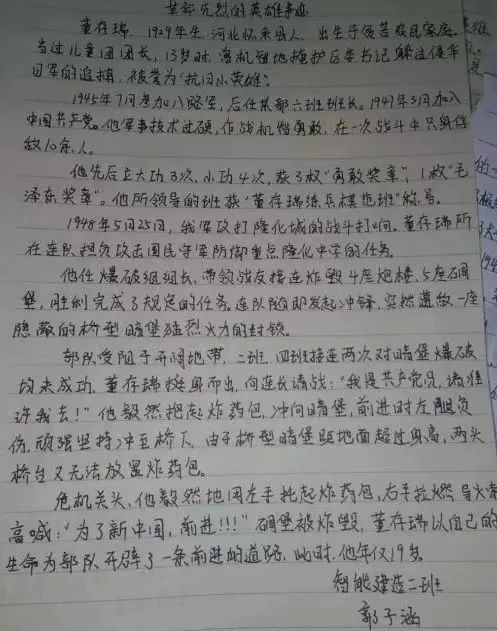 革命先烈的英雄事迹
董存瑞，1929年生，河北怀来县人，出生于贫苦农民家庭。
当过儿童团团长，13岁时，曾机智地掩护区委书记躲过侵华
日军的追捕，被誉为"抗日小英雄"。
1945年7月参加八路军，后任某部六班班长。1947年3月加入
中国共产党。他军事技术过硬，作战机智勇敢，在一次战斗中只身俘
敌10余人。
他先后立大功3次、小功4次，获3枚"勇敢奖章"、1枚"毛
泽东奖章"。他所领导的班获"董存瑞练兵模范班"称号。
1948年5月25日，我军攻打隆化城的战斗打响。董存瑞所
在连队担负攻击国民守军防御重点隆化中学的任务。
他任爆破组组长，带领战友接连炸毁4座炮楼、5座碉
堡，胜利完成了规定的任务。连队随即发起冲锋，突然遭敌一座
隐蔽的桥型暗堡猛烈火力的封锁。
部队受阻于开阔地带，二班、四班接连两次对暗堡爆破
均未成功。董存瑞挺身而出，向连长请战："我是共产党员，请准
许我去！"他毅然抱起炸药包，冲向暗堡，前进时左腿负
伤，顽强坚持冲至桥下。由于桥型暗堡距地面超过身高，两头
桥台又无法放置炸药包。
危机关头，他毅然地用左手托起炸药包，右手拉燃导火索
高喊："为了新中国，前进!!!"碉堡被炸毁，董存瑞以自己的
生命为部队开辟了一条前进的道路，此时，他年仅19岁。
智能建造二班
郭子涵
194